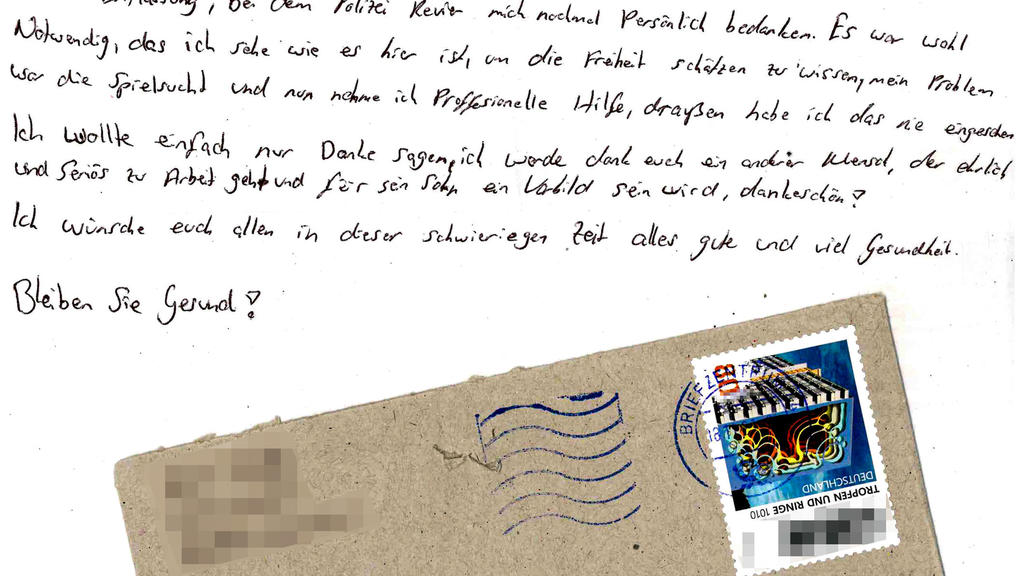 bei dem Polizei Revier mich nochmal Persönlich bedanken. Es war wohl
Notwendig, das ich sehe wie es hier ist, um die Freiheit schätzen zu wissen, mein Problem
war die Spielsucht und nun nehme ich Proffesionelle Hilfe, draußen habe ich das nie eingesehen
Ich wollte einfach nur Danke sagen, ich werde dank euch ein anderer Mensch, der ehrlich
und Seriös zu Arbeit geht und für sein Sohn ein Vorbild sein wird, dankeschön!
Ich wünsche euch allen in dieser schwieriegen Zeit alles gute und viel Gesundheit.
Bleiben Sie Gesund!
BRIEFZENTRUM
DEUTSCHLAND
TROPFEN UND RINGE 1010